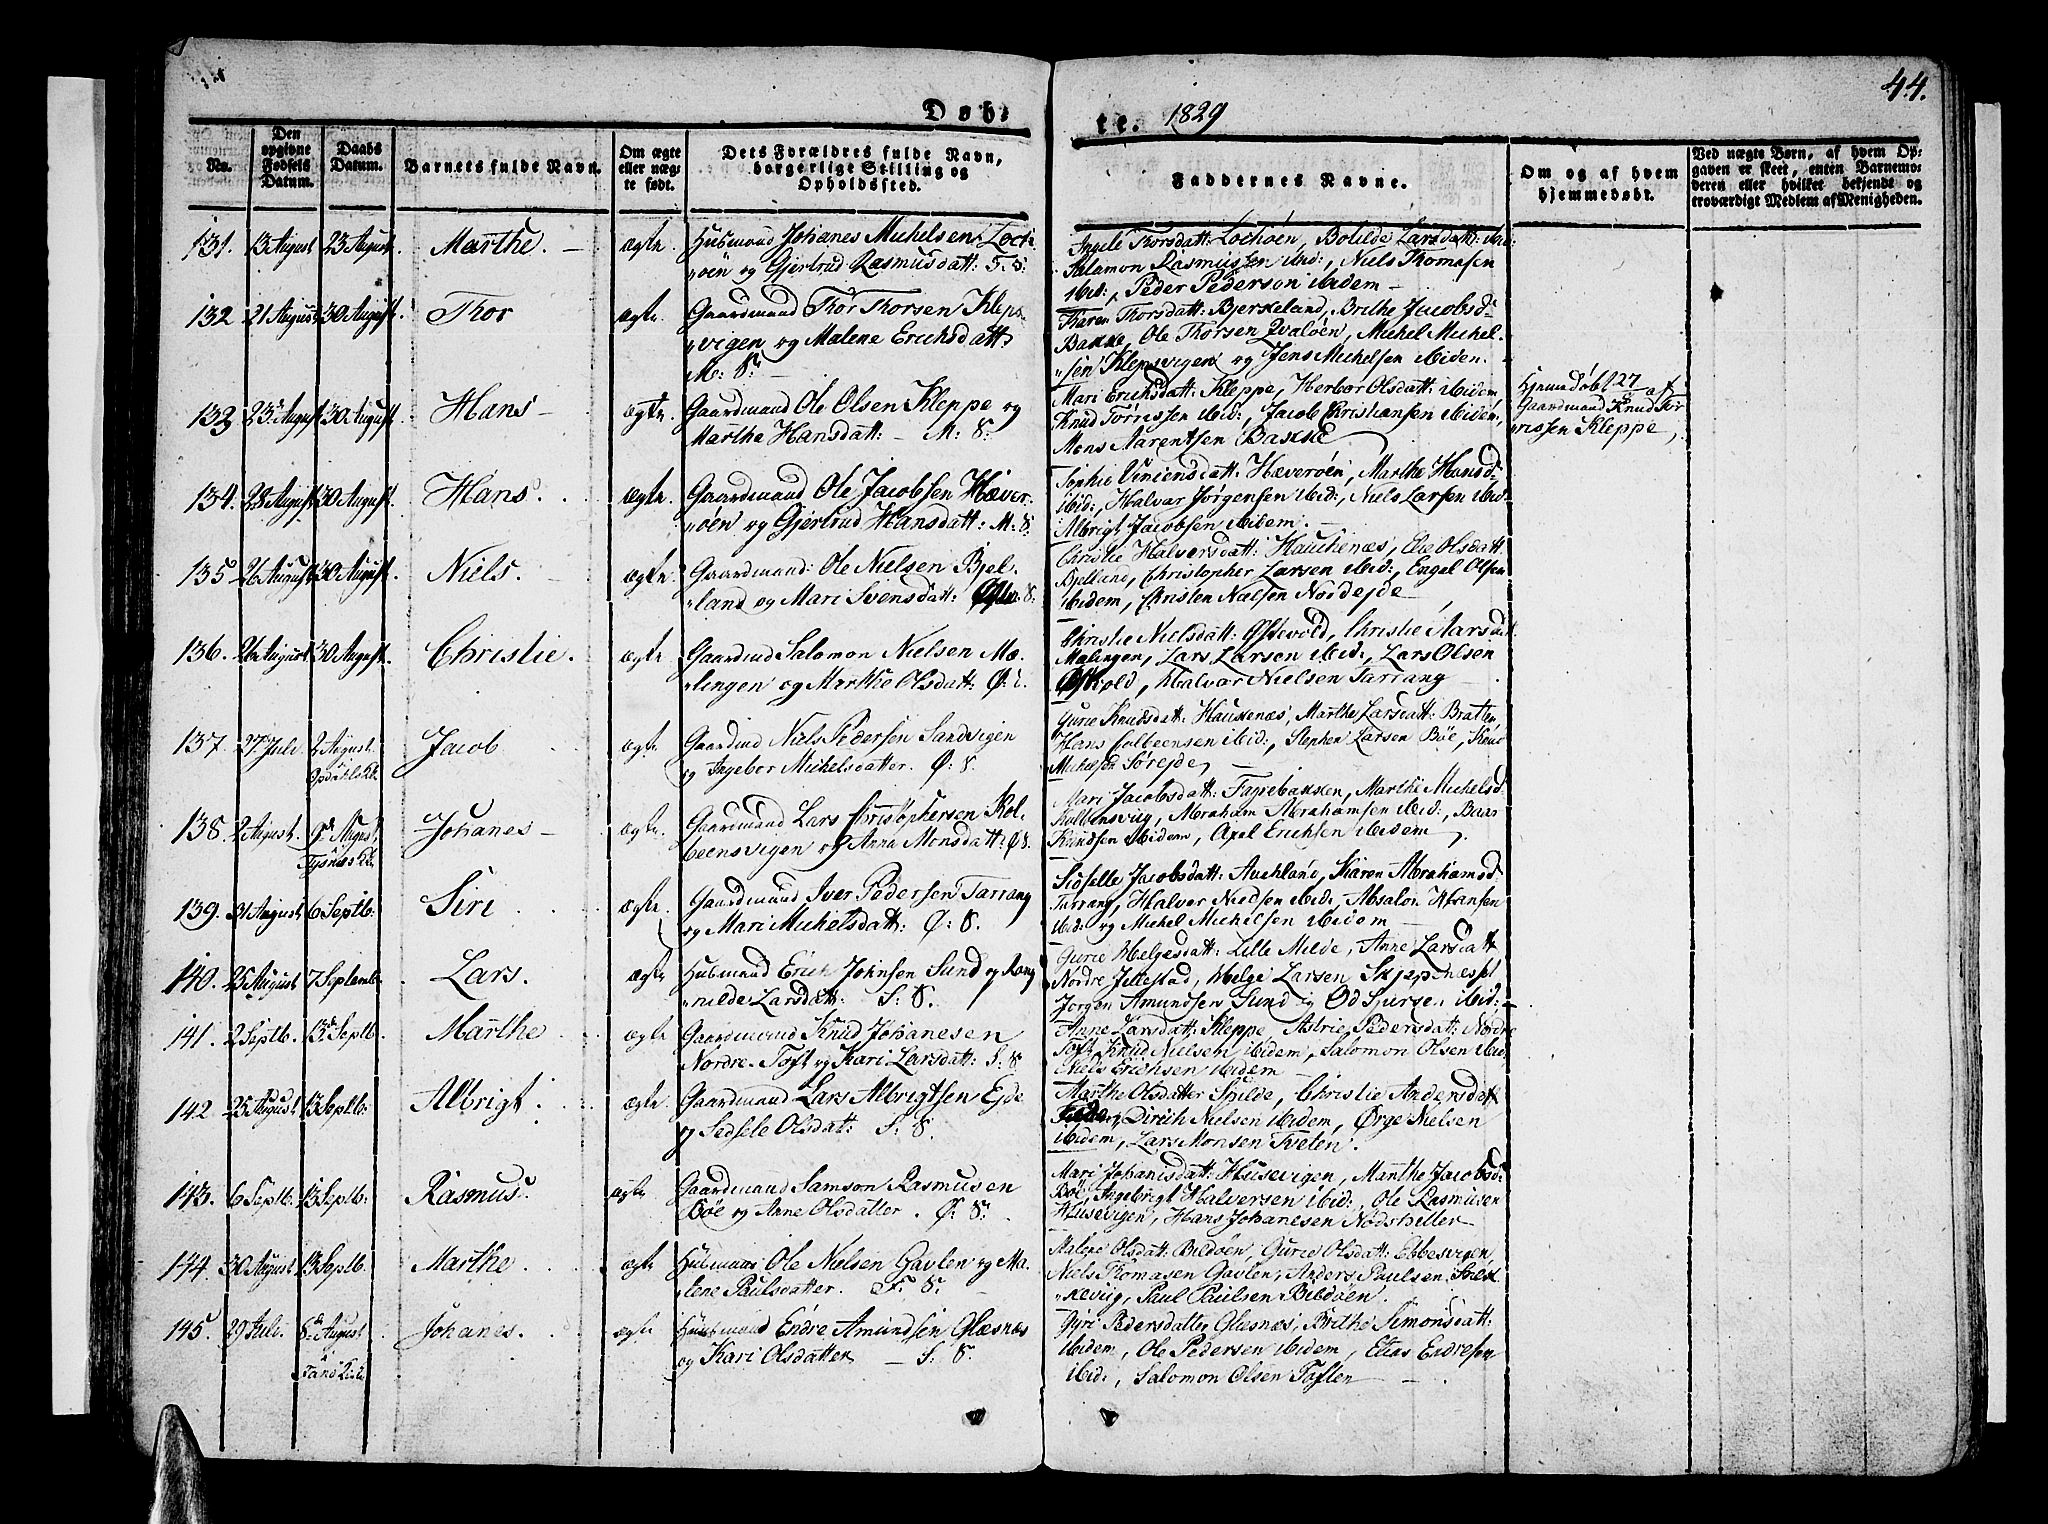 44.
Døb- te. 1829
No.
Den opgivne Fødsels Datum.
Daabs Datum.
Barnets fulde Navn.
Om ægte eller uægte født.
Dets Forældres fulde Navn, borgerlige Stilling og Opholdssted.
Faddernes Navne.
Om og af hvem hjemmedøbt.
Ved uægte Børn, af hvem Opgaven er skeet, enten Barnemoderen eller hvilket bekjendt og troværdigt Medlem af Menigheden.
131. 13 August 23 August. Marthe. ægte.
Husmand Johanes Michelsen Loch-
øen og Gjertrud Rasmusdatt: F: S:
Thorsdatt: Lochøen, Botilde Larsdatt: ibid:
Salamon Rasmussen ibid:, Niels Thomasen
ibid:, Peder Pedersen ibidem
132 21 August 30 August. Thor ægte.
Gaardmand Thor Thorsen Kleps-
vigen og Malene Erichsdatt:
M: S:
Karen Thorsdatt: Bjerkeland, Brithe Jacobsd:
Bakke, Ole Thorsen Qvaløen, Michel Michel-
sen Klepsvigen og Jens Michelsen ibidem.
133 23 August 30 August. Hans ægte.
Gaardmand Ole Olsen Kleppe og
Marthe Hansdatt: M: S:
Mari Erichsdatt: Kleppe, Herbor Olsdatt: ibidem,
Knud Torrissen ibid:, Jacob Christiansen ibidem,
Mons Aarentsen Bakke
Hjemmdøbt 27 af
Gaardmand Knud Tor-
rissen Kleppe,
134. 28 August 30 August. Hans. ægte.
Gaardmand Ole Jacobsen Hæver-
øen og Gjertrud Hansdatt: M: S.
Sophie Hæverøen, Marthe Hansd:
ibid:, Halvar Jørgensen ibid:, Niels Larsen ibid:
Albrigt Jacobsen ibidem.
135 26 August 30 August. Niels. ægte.
Gaardmand: Ole Nielsen Bjel-
land og Mari Svensdatt: S.
Christie Halversdatt: Haukenæs, Olsdatt.
Bjelland, Christopher Larsen ibid:, Engel Olsen
ibidem, Christen Nielsen Nordejde
136. 26 August 30 August. Christie. ægte
Gaardmd Salomon Nielsen Mæ-
lingen og Marthe Olsdatt: Ø:
Christie Nielsdatt: Østevold, Christie
Mælingen, Lars Larsen ibid:, Lars Olsen
Østvold, Halvar Nielsen Tarrang
137. 27 Juli 2 August. Opdahls K. Jacob ægte
Gaardmd Niels Pedersen Sandvigen
og Ingebor Michelsdatter. Ø: S.
Gurie Knudsdatt: Haukenæs, Marthe Larsdatt: Bratten,
Hans Colbeensen ibid:, Stephen Larsen Bøe, Knud
Michelsen Sørejde,
138. 2 August. 9de August Tysnæs K. Johanes ægte.
Gaardmand Lars Christophersen Kol-
beensvigen og Anna Monsdatt: Ø S.
Mari Jacobsdatt: Fagrebakken, Marthe Michelsd
Kolbensviig, Abraham Abrahamsen ibid:, Baar
Knudsen ibidem, Axel Erichsen ibidem
139. 31 August 6 Septb: Siri ægte.
Gaardmand Iver Pedersen Tarrang
og Mari Michelsdatt: Ø: S.
Sidselle Jacobsdatt: Auchland, Karen Abrahamsd:
Tarrang, Halvor Nielsen ibid:, Absalon Hansen
ibid: og Michel Michelsen ibidem
140. 25 August 7 Septemb: Lars. ægte
Husmand Erich Johnsen Sund og Rang-
nilde Larsdatt: S: S.
Gurie Helgesdatt: Lille Milde, Anne Larsdatt
Nordre Jillestad, Helge Larsen
Jørgen Amundsen Sund og ibid:
141. 2 Septb. 13de Septb. Marthe ægte
Gaardmand Knud Johanesen
Nordre Toft og Kari Larsdatt: S: S
Anne Larsdatt: Kleppe, Astrie Pedersdatt: Nordre
Toft, Knud Nielsen ibidem, Salomon Olsen ibid:
Niels Erichsen ibidem
142 25 August 13 Septb: Albrigt. ægte
Gaardmand Lars Albrigtsen Ejde
og Sedsele Olsdat: S: S.
Marthe Olsdatter Spilde, Christie Andersdatt
Dirich Nielsen ibidem, Ørge Nielsen
ibidem, Lars Monsen Tveten.
143. 6 Septb. 13 Septb: Rasmus. ægte
Gaardmand Samson Rasmusen
Bøe og Anne Olsdatter. Ø: S:
Mari Johanisdatt: Husevigen, Marthe Jacobsd:
Bøe, Ingebrigt Halversen ibid:, Ole Rasmusen
Husevigen, Hans Johanesen
144. 30 August 13 Septb. Marthe ægte
Husmand Ole Nielsen Gavlen og Ma-
lene Paulsdatter. F: S:
Malene Olsdatt: Bildøen, Gurie Olsdatt: Ebbesvigen,
Niels Thomasen Gavlen, Anders Paulsen
Paul Paulsen Bildøen.
145. 29 Juli. 8de August Johanes. ægte
Husmand Endre Amundsen Glæsnæs
og Kari Olsdatter S: S.
Gyri Pedersdatter Glæsnæs, Brithe Simonsdatt:
ibidem, Ole Pedersen ibidem, Elias Endresen
ibid:, Salomon Olsen Toften